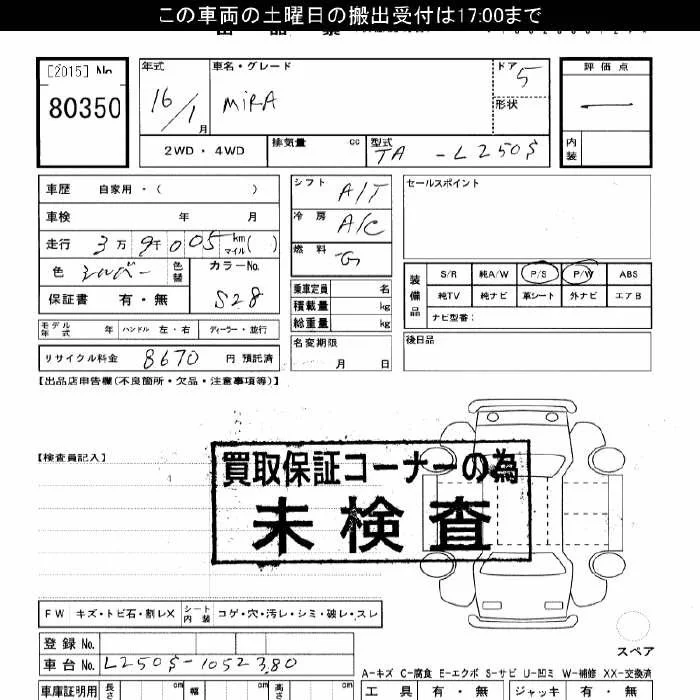 この車両の土曜日の搬出受付は17:00まで
[2015] No
80350
年式
16/1月
車名・グレード
MiRA
ドア
5
形状
評価点
—
内装
2WD・4WD
排気量 cc
型式
TA-L250S
車歴 自家用・( )
車検 年 月
走行 3万9千005 km マイル( )
色 シルバー 色替
カラーNo.
S28
保証書 有・無
モデル年式 年 ハンドル 左・右 ディーラー・並行
リサイクル料金 8670 円 預託済
シフト A/T
冷房 A/C
燃料 G
乗車定員 名
積載量 kg
総重量 kg
名変期限
月 日
セールスポイント
装備品
S/R 純A/W P/S P/W ABS
純TV 純ナビ 革シート 外ナビ エアB
ナビ型番:
後日品
【出品店申告欄(不良箇所・欠品・注意事項等)】
【検査員記入】
買取保証コーナーの為
未検査
FW キズ・トビ石・割レX シート内装 コゲ・穴・汚レ・シミ・破レ・スレ
登録No.
車台No. L250S-1052380
スペア
A-キズ C-腐食 E-エクボ S-サビ U-凹ミ W-補修 XX-交換済
車庫証明用 長さ cm 幅 cm 高さ cm
工具 有・無 ジャッキ 有・無